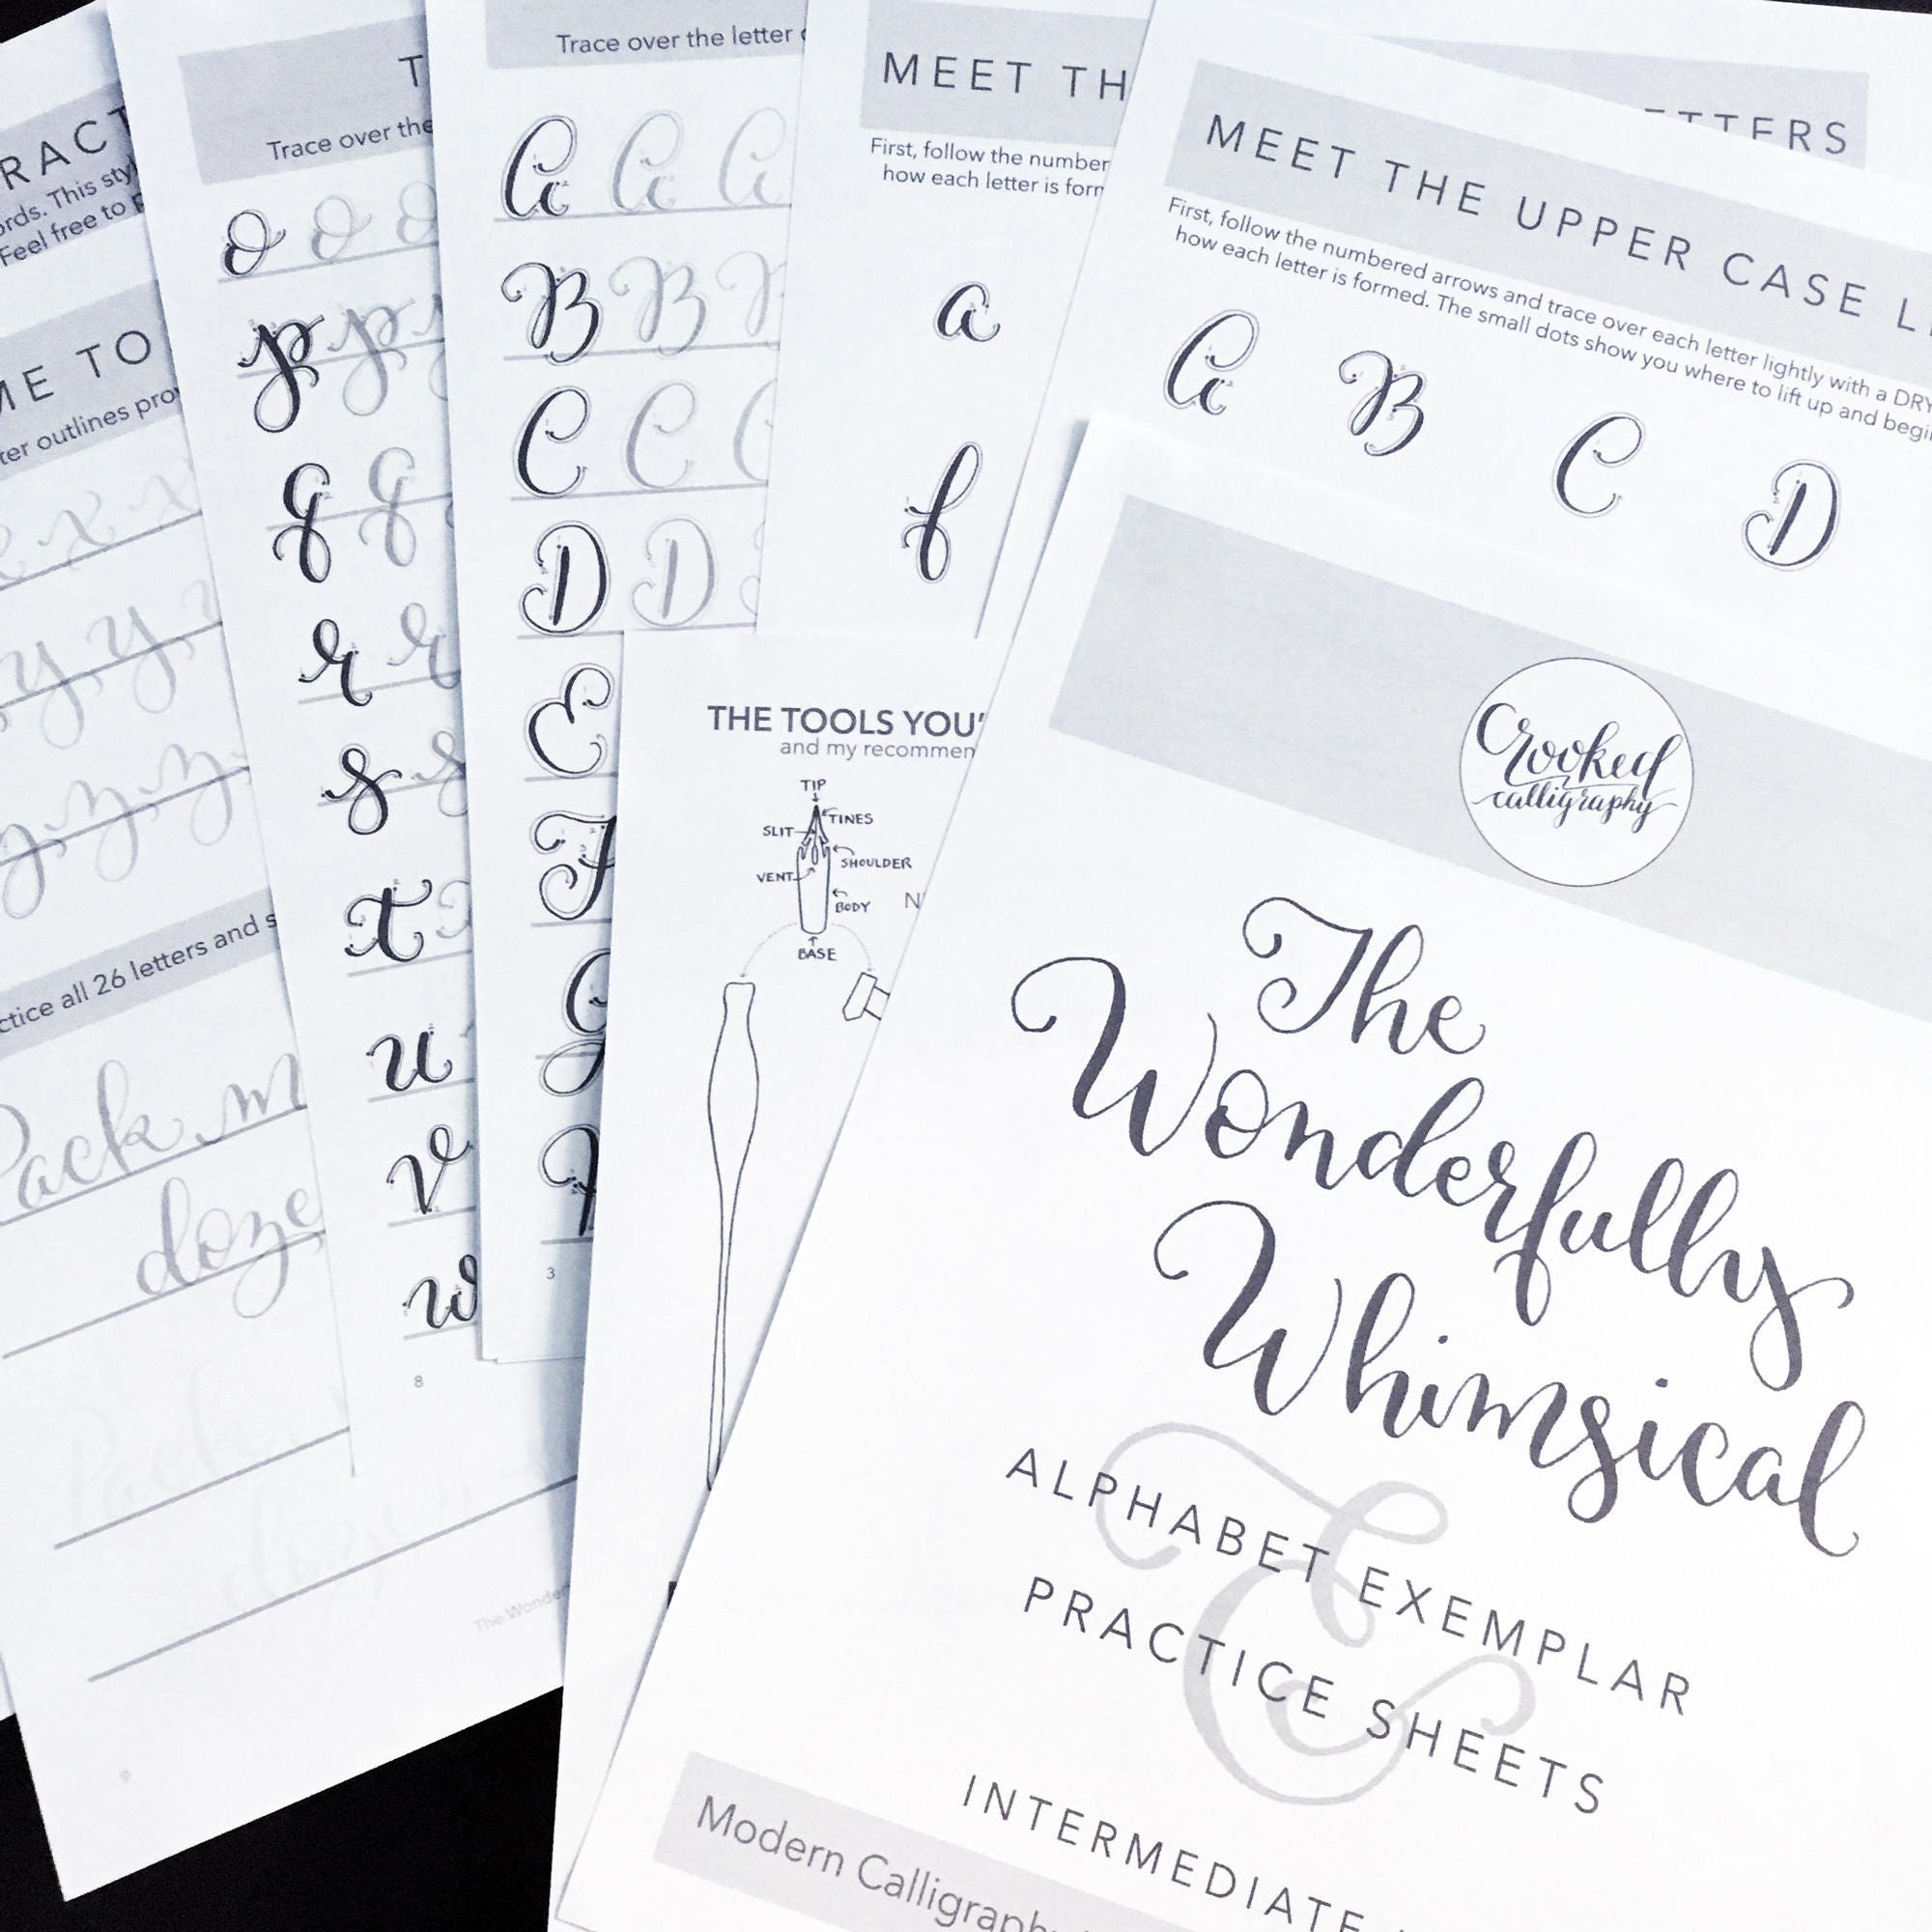 Crooked
calligraphy
The
Wonderfully
Whimsical
&
ALPHABET EXEMPLAR
PRACTICE SHEETS
INTERMEDIATE
Modern Calligraphy
MEET THE UPPER CASE L
First, follow the numbered arrows and trace over each letter lightly with a DRY
how each letter is formed. The small dots show you where to lift up and begin
A B C D
ETTERS
MEET TH
First, follow the number
how each letter is form
a
f
THE TOOLS YOU'
and my recommen
TIP
TINES
SLIT
SHOULDER
VENT
BODY
N
BASE
Trace over the letter
A A A
B B B
C C C
D D D
E
F
G
H
3
T
Trace over the
o o o
p p p
q q
r r
s s
t t
u
v
w
8
RACT
ords. This sty
Feel free to
ME TO
ter outlines pro
x x x
y y
z z z
ctice all 26 letters and s
Pack m
doze
Pack
dozen
The Wonder
9